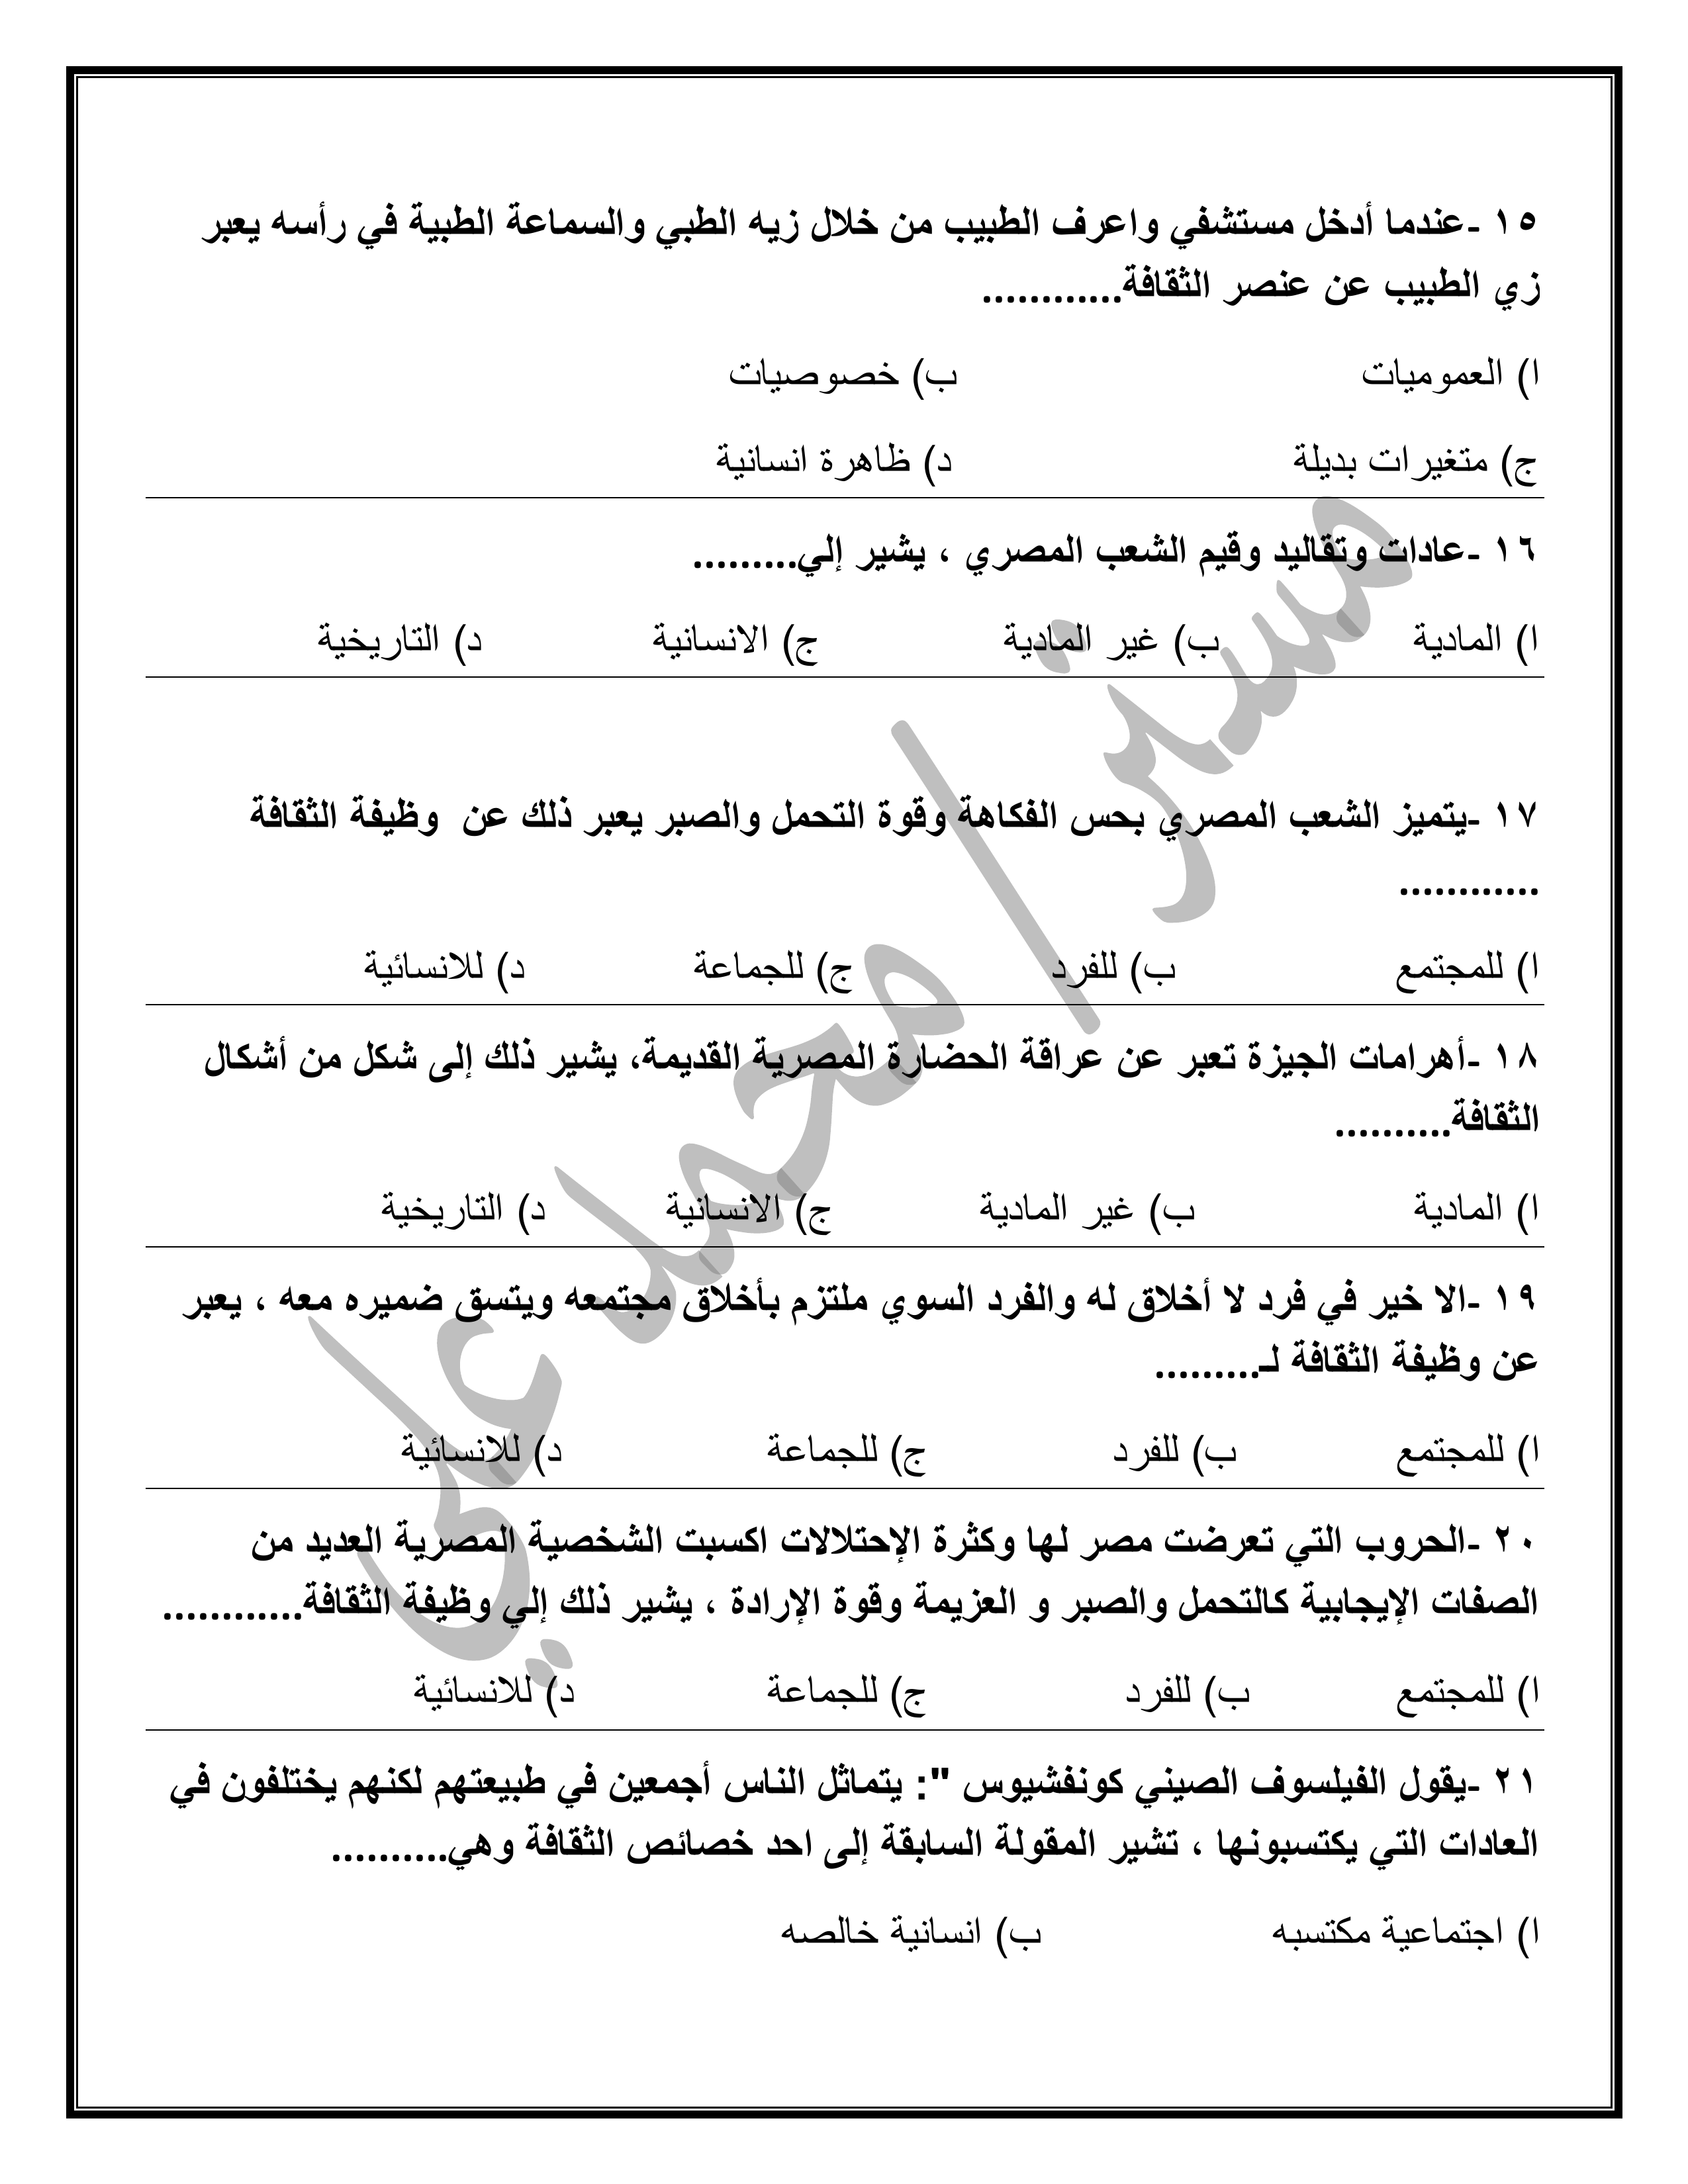 ١٥ -عندما أدخل مستشفي واعرف الطبيب من خلال زيه الطبي والسماعة الطبية في رأسه يعبر
زي الطبيب عن عنصر الثقافة............
ا) العموميات ب) خصوصيات
ج) متغيرات بديلة د) ظاهرة انسانية
١٦ -عادات وتقاليد وقيم الشعب المصري ، يشير إلي.........
ا) المادية ب) غير المادية ج) الانسانية د) التاريخية
١٧ -يتميز الشعب المصري بحس الفكاهة وقوة التحمل والصبر يعبر ذلك عن وظيفة الثقافة
............
ا) للمجتمع ب) للفرد ج) للجماعة د) للانسائية
١٨ -أهرامات الجيزة تعبر عن عراقة الحضارة المصرية القديمة، يشير ذلك إلى شكل من أشكال
الثقافة..........
ا) المادية ب) غير المادية ج) الانسانية د) التاريخية
١٩ -الا خير في فرد لا أخلاق له والفرد السوي ملتزم بأخلاق مجتمعه ويتسق ضميره معه ، يعبر
عن وظيفة الثقافة لـ.........
ا) للمجتمع ب) للفرد ج) للجماعة د) للانسائية
٢٠ -الحروب التي تعرضت مصر لها وكثرة الإحتلالات اكسبت الشخصية المصرية العديد من
الصفات الإيجابية كالتحمل والصبر و العزيمة وقوة الإرادة ، يشير ذلك إلي وظيفة الثقافة............
ا) للمجتمع ب) للفرد ج) للجماعة د) للانسائية
٢١ -يقول الفيلسوف الصيني كونفشيوس ": يتماثل الناس أجمعين في طبيعتهم لكنهم يختلفون في
العادات التي يكتسبونها ، تشير المقولة السابقة إلى احد خصائص الثقافة وهي..........
ا) اجتماعية مكتسبه ب) انسانية خالصه
مستر/ محمد علي